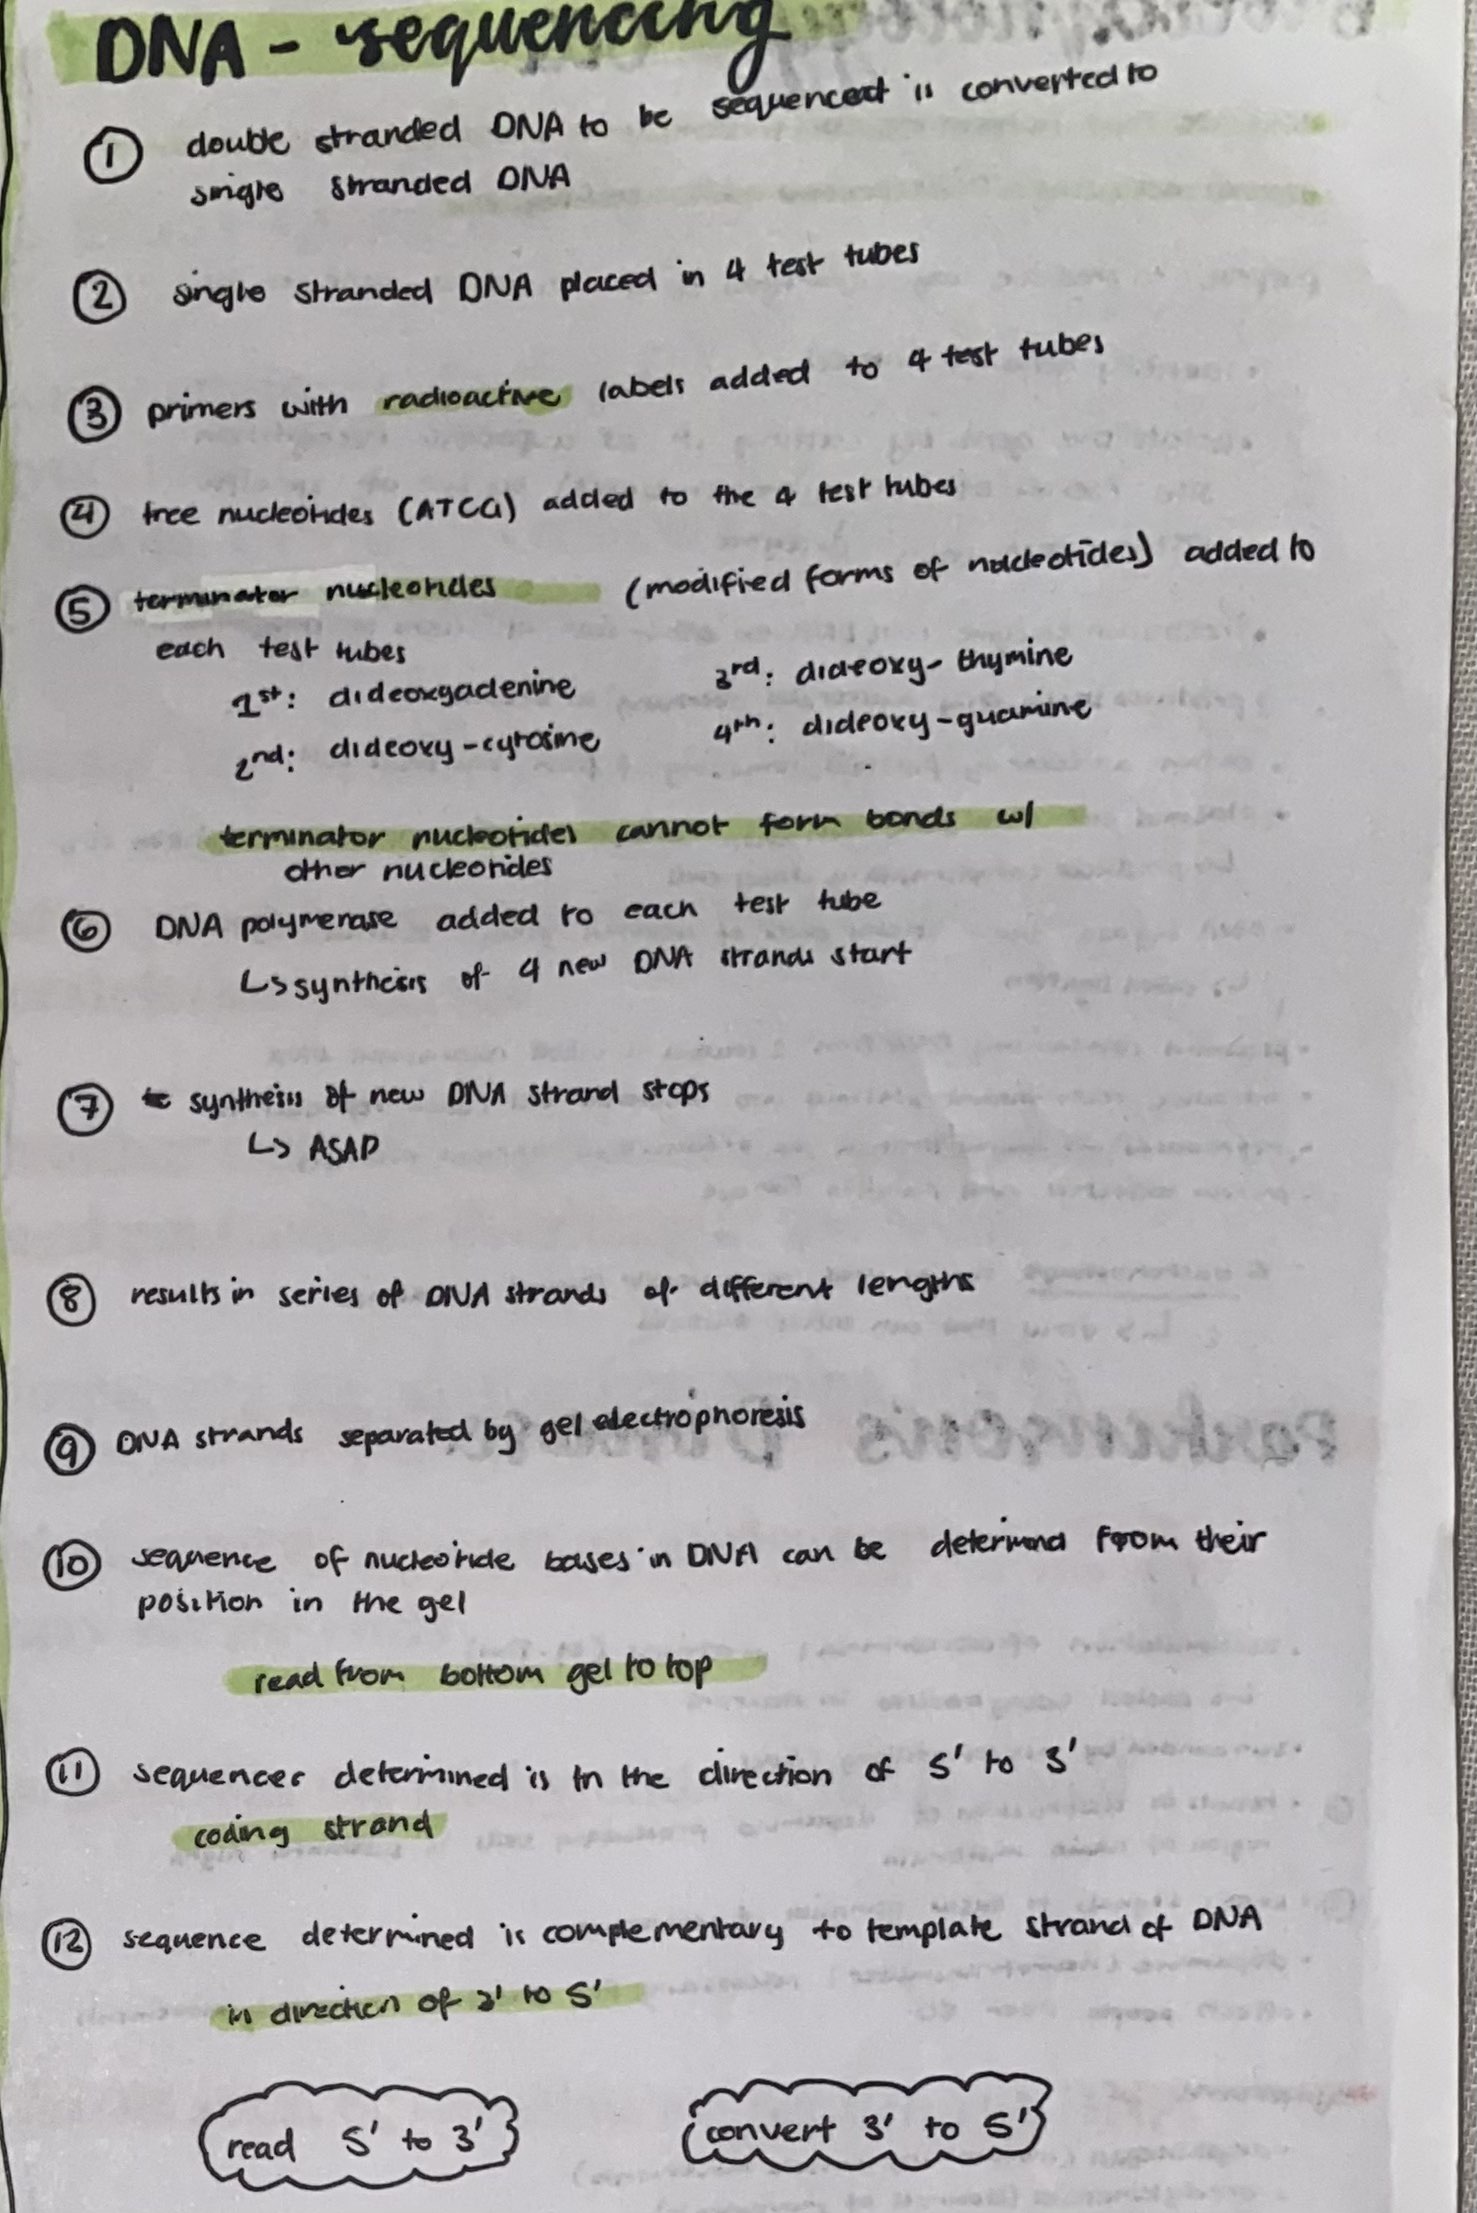 DNA - sequencing
① double stranded DNA to be sequenced is converted to
single stranded DNA
② single stranded DNA placed in 4 test tubes
③ primers with radioactive labels added to 4 test tubes
④ free nucleotides (ATCG) added to the 4 test tubes
⑤ terminator nucleotides (modified forms of nucleotides) added to
each test tubes
1st: dideoxyadenine
2nd: dideoxy-cytosine
3rd: dideoxy-thymine
4th: dideoxy-guanine
terminator nucleotides cannot form bonds w/
other nucleotides
⑥ DNA polymerase added to each test tube
↳ synthesis of 4 new DNA strands start
⑦ synthesis of new DNA strand stops
↳ ASAP
⑧ results in series of DNA strands of different lengths
⑨ DNA strands separated by gel electrophoresis
⑩ sequence of nucleotide bases in DNA can be determined from their
position in the gel
read from bottom gel to top
⑪ sequences determined is in the direction of 5' to 3'
coding strand
⑫ sequence determined is complementary to template strand of DNA
in direction of 3' to 5'
read 5' to 3'
convert 3' to 5'
Parkinson's